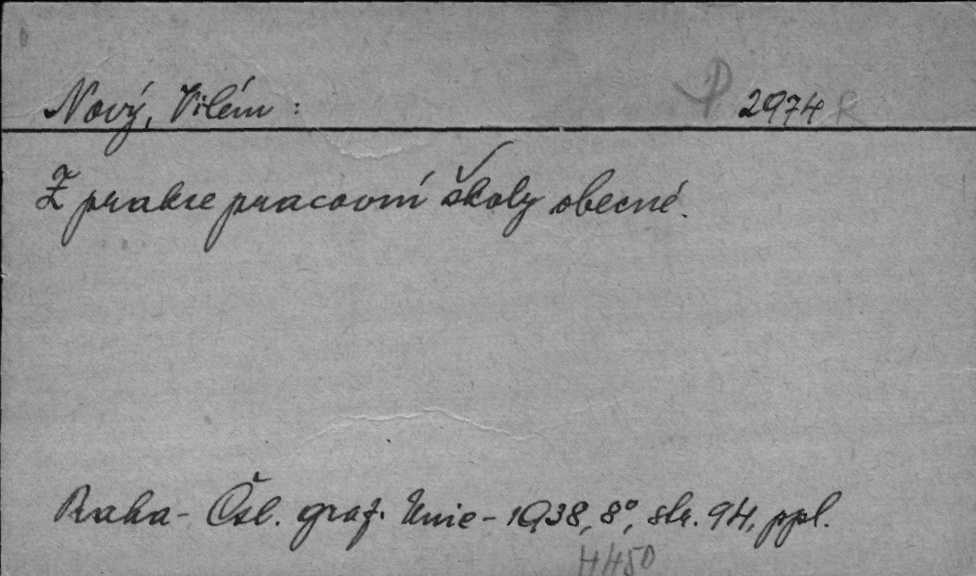 Nový, Vilém : P 2974 R
Z prakse pracovní školy obecné.
Praha - Čsl. graf. Unie - 1938, 8°, str. 94, ppl.
H450